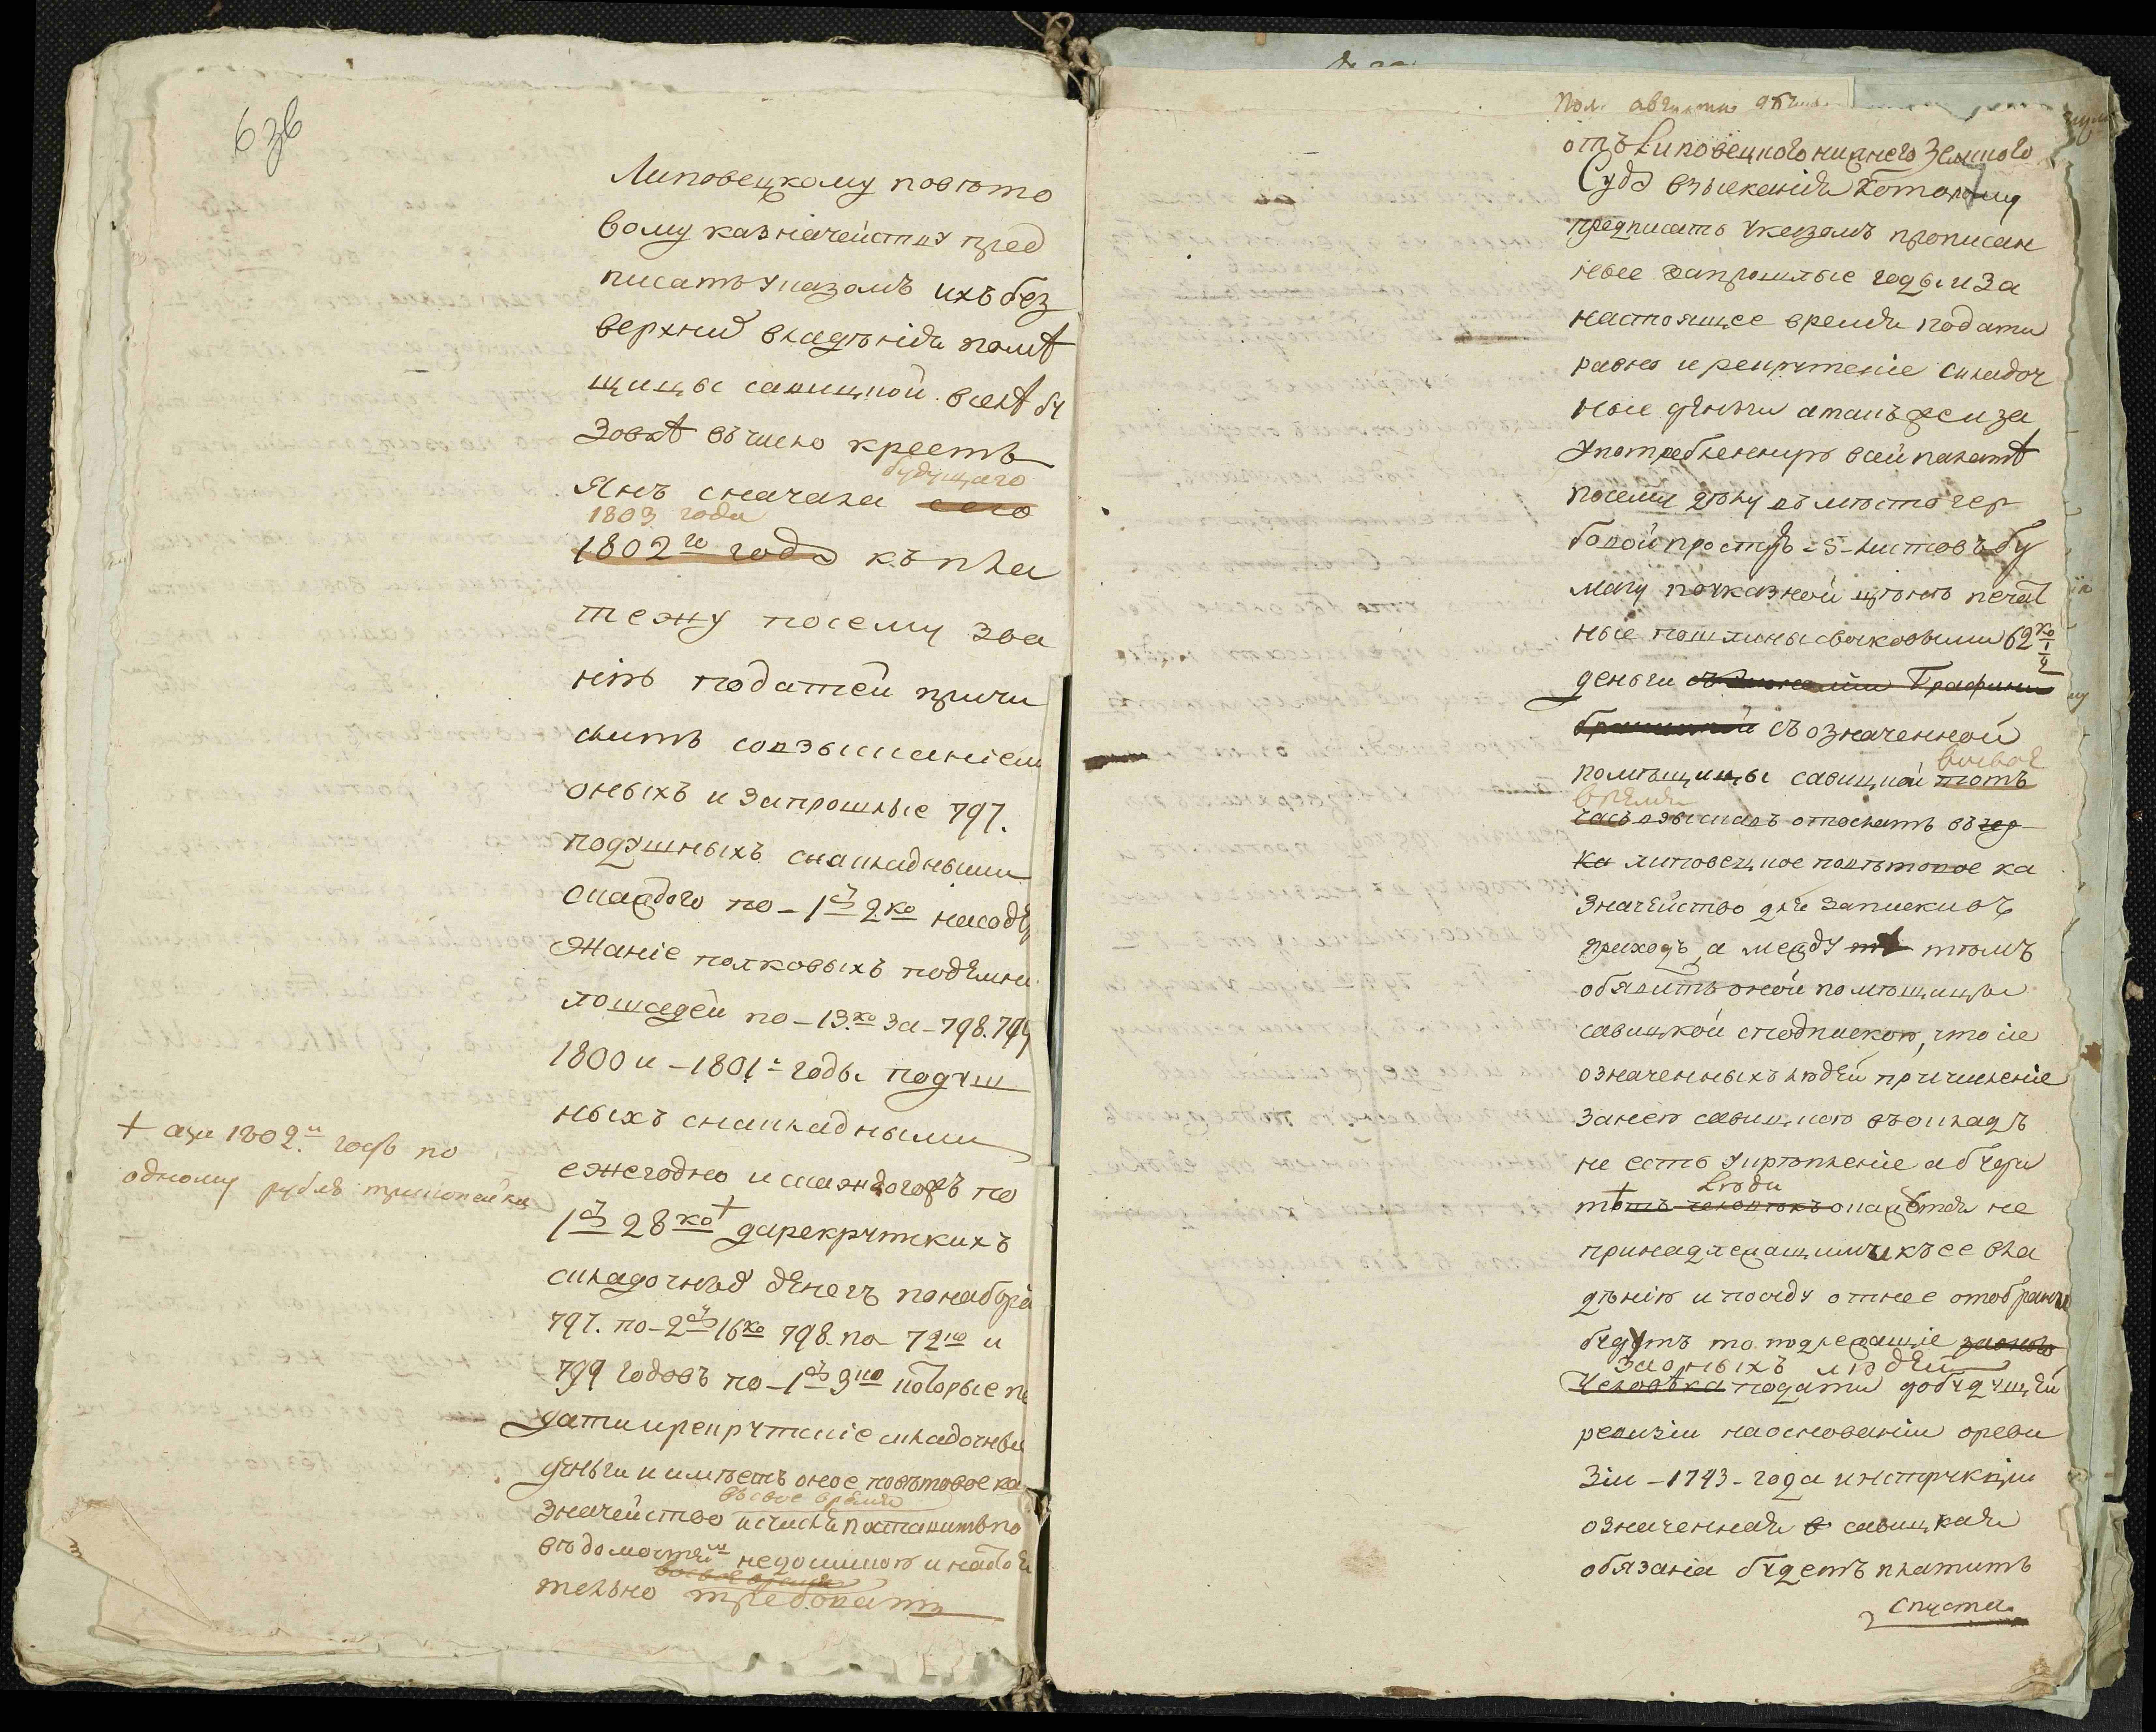 6 зв
Липовецкому повѣто
вому казначейству пред
писать указомъ ихъ без
верхний владѣнія помѣ
щицы савицкой в селѣ бу
зовкѣ въ число крестъ
будущаго
янъ сначала сего
1803 года
1802го года къ пла
тежу посему зва
нію податей причи
слить совзысканіем
оныхъ и запрошлые 797.
подушныхъ снакладными
скаждого по - 1 2 ко насодер
жаніе полковыхъ подъемны
лошадей по - 13 ко за - 798. 799
1800 и - 1801 годы подуш
ныхъ снакладными
ежегодно и скаждого по
1 28 ко + да рекрутскихъ
складочныхъ денегъ понабора
797. по - 2 16 ко 798. по - 72 ко и
799 годовъ по - 1 3 ко которые по
дати и рекрутскіе складочны
деньги и имѣетъ оное повѣтовое ка
въ свое время
значейство исчисля поставить по
вѣдомостям недоимкою и настоя
во свое время
тельно требовать
+ а за 1802й годъ по
одному рублю три копейки
Пол. августа
отъ Липовецкого нижнего Земского
Суда взысканія Которому
предписать указомъ прописан
ные запрошлые годы и за
настоящее время подати
равно и рекрутскіе складоч
ные деньги а такъ же и за
употребленную в сей палатѣ
посему дѣлу въ мѣсто гер
бовой простую - 5 - листовъ бу
магу поуказной цѣною печат
ные пошлины свосковыми 62 ко 1/4
деньги Графини
съ означенной
во свое
помѣщицы савицкой тотъ
время
часъ взыскавъ отослать въ
ка липовецкое повѣтовое ка
значейство для записки въ
приходъ, а между тѣмъ
обявить оной помѣщицы
савицкой сподпискою, что не
означенныхъ людей причисленіе
занею савицкою въ окладъ
не есть укрѣпленіе а буди
люди
тѣ человѣкъ окажутся не
принадлежащими къ ее вла
дѣнію и посуду отнее отобраны
будутъ то подлежащіе заоного
заоныхъ людей
Человѣка подати до будущей
ревизіи на основаніи о реви
зіи - 1743 - года инструкции
означенная савицкая
обязана будетъ платить
спустя